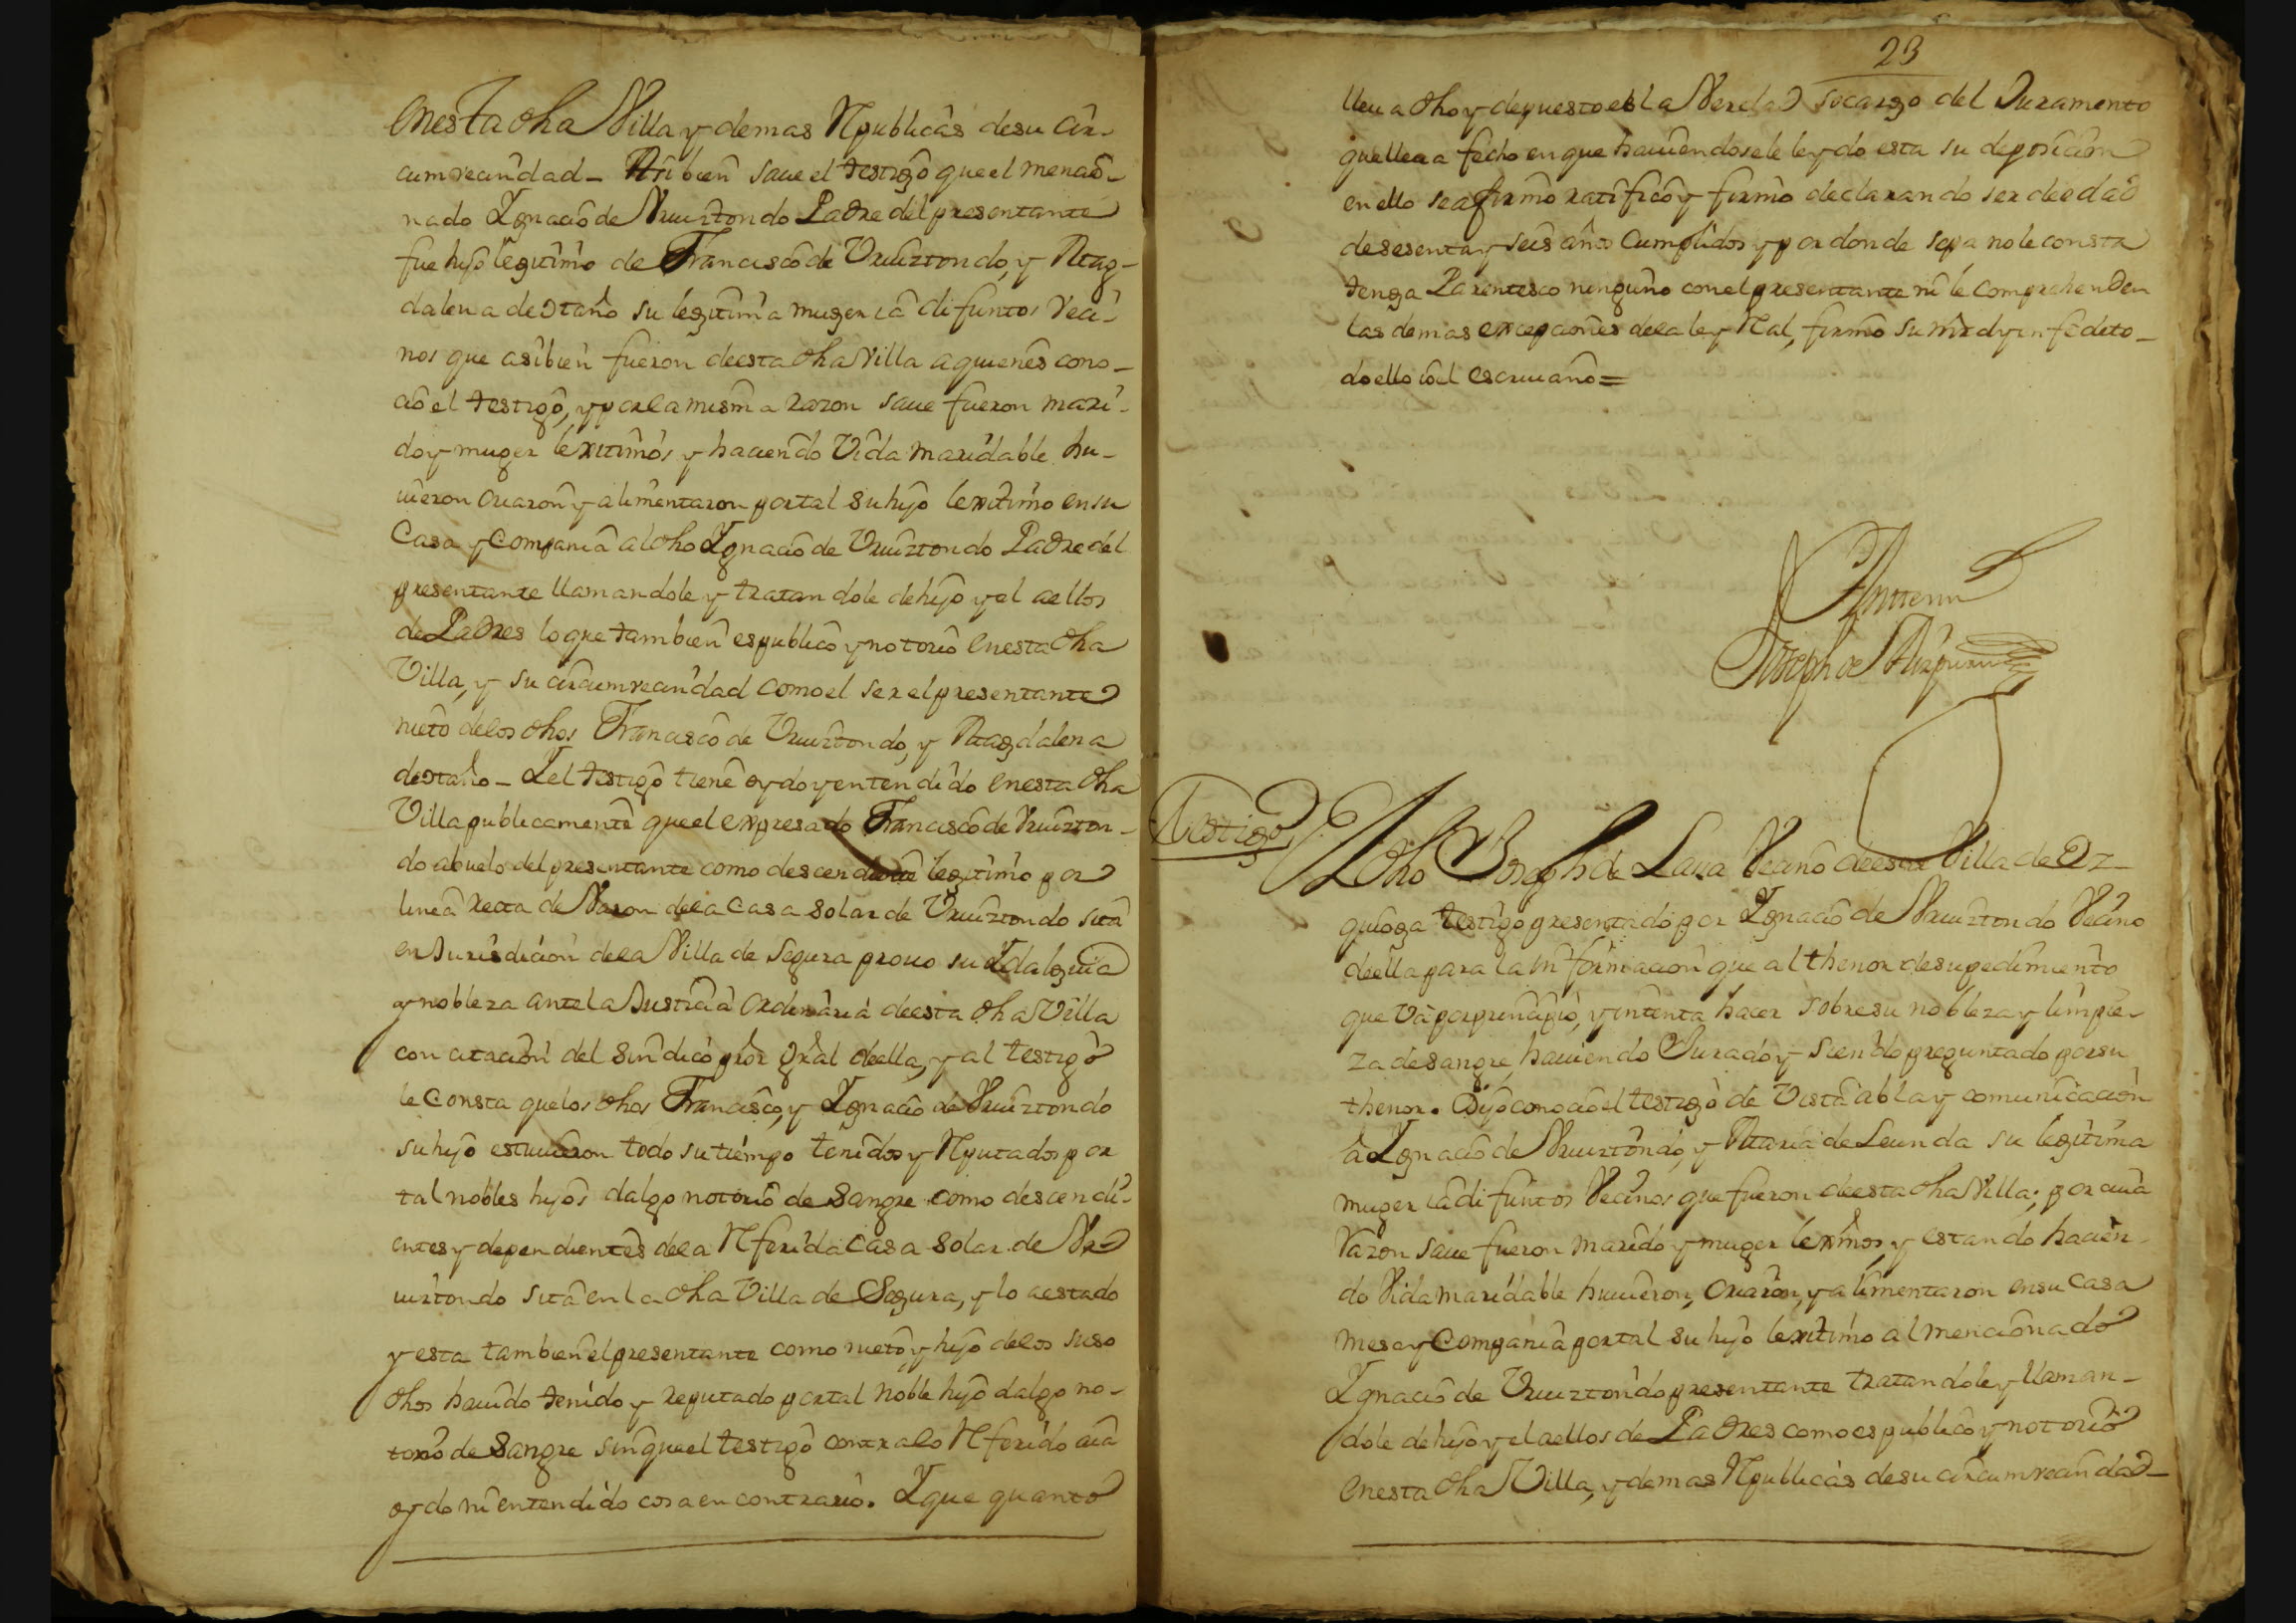 enesta dha Villa y demas Rpublicas desu cir-
cumvecindad - Asi bien saue el testigo que el mencio-
nado Ygnacio de Vruiztondo Padre del presentante
fue hijo legitimo de Francisco de Vruiztondo, y Mag-
dalena de Otaño su legitima muger ia difuntos veci-
nos que asibien fueron deesta dha Villa aquienes cono-
cio el testigo, y por la misma razon saue fueron mari-
do y muger lexitimos y haciendo Vida maridable hu-
uieron criaron y alimentaron por tal su hijo lexitimo en su
Casa y Compania al dho Ygnacio de Vruiztondo Padre del
presentante llamandole y tratandole de hijo y el aellos
de Padres lo que tambien es publico y notorio enesta dha
Villa, y su circumvecindad como el ser el presentante
nieto delos dhos Francisco de Vruiztondo, y Magdalena
de Otaño - Y el testigo tiene oydo y entendido enesta dha
Villa publicamente que el expresado Francisco de Vruizton-
do abuelo del presentante como descendiente legitimo por
linea recta de Varon dela Casa Solar de Vruiztondo sita
en Jurisdicion dela Villa de Segura prouo su Ydalguia
y nobleza ante la Justicia Ordinaria deesta dha Villa
con citacion del Sindico pror gral deella, y al testigo
le Consta que los dhos Francisco, y Ygnacio de Vruiztondo
su hijo estuuieron todo su tiempo tenidos y Rputados por
tal nobles hijos dalgo notorio de Sangre como descendi-
entes y dependientes dela Rferida Casa Solar de Vr-
uiztondo sita en la dha Villa de Segura, y lo aestado
y esta tambien el presentante como nieto, y hijo delos suso
dhos hauido tenido y reputado por tal noble hijo dalgo no-
torio de Sangre sin que el testigo contra lo Rferido aia
oydo ni entendido cosa en contrario. Y que quanto
23
lleua dho y depuesto es la Verdad socargo del Juramento
que lleua fecho en que hauiendosele leydo esta su deposicion
en ello se afirmo ratifico y firmo declarando ser de edad
de sesenta y seis años Cumplidos y por donde sepa no le consta
tenga Parentesco ninguno con el presentante ni le comprehenden
las demas excepciones dela ley Ral, firmo su mrd y en fe de to-
do ello io el escriuano =
Antemi
Joseph de Aizpuru
Testigo
El dho Joseph de Lasa Vecino deesta Villa de Az-
queoga testigo presentado por Ygnacio de Vruiztondo Vecino
deella para la informacion que al thenor desu pedimiento
que va por principio, y intenta hacer sobre su nobleza y limpie-
za de sangre, hauiendo Jurado y siendo preguntado por su
thenor. Dijo conocio el testigo de Vista abla y comunicacion
a Ygnacio de Vruiztondo, y Maria de Leunda su legitima
muger ia difuntos Vecinos que fueron deesta dha Villa; por cuia
Razon saue fueron marido y muger lexmos, y estando hacien-
do Vida maridable huuieron, criaron, y alimentaron en su casa
mesa y Compania por tal su hijo lexitimo al mencionado
Ygnacio de Vruiztondo presentante tratandole y llaman-
dole de hijo y el aellos de Padres como es publico y notorio
enesta dha Villa, y demas Rpublicas desu circumvecindad -